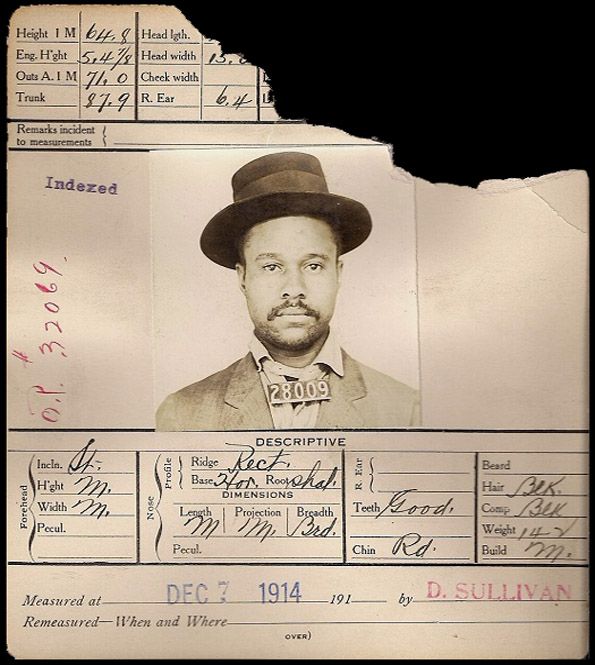 Height 1 M 64.8 Head lgth.
Eng. H'ght 5.4 7/8 Head width 15.
Outs A. 1 M 71.0 Cheek width
Trunk 87.9 R. Ear 6.4 L
Remarks incident
to measurements
Indexed
O.P. # 32069.
28009
DESCRIPTIVE
Forehead
Incln. St.
H'ght M.
Width M.
Pecul.
Nose
Profile
Ridge Rect.
Base Hor. Root Shal.
DIMENSIONS
Length Projection Breadth
M M. Brd.
Pecul.
R. Ear
Teeth Good.
Chin Rd.
Beard
Hair Blk.
Comp Blk
Weight 142
Build M.
Measured at DEC 7 1914 191 by D. SULLIVAN
Remeasured—When and Where
OVER)